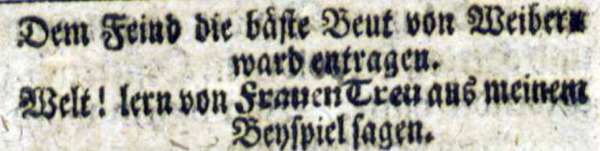 Dem Feind die bäſte Beut von Weibern
ward entragen.
Welt! lern von Frauen Treu aus meinem
Beyſpiel ſagen.